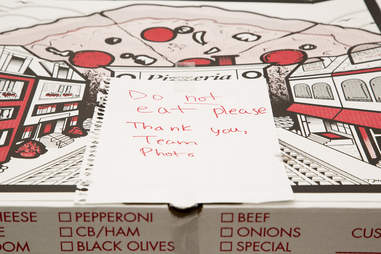 Pizzeria
Do not
eat please
Thank you,
Team
Photo
HEESE
PEPPERONI
BEEF
E
CB/HAM
ONIONS
CUS
OOM
BLACK OLIVES
SPECIAL